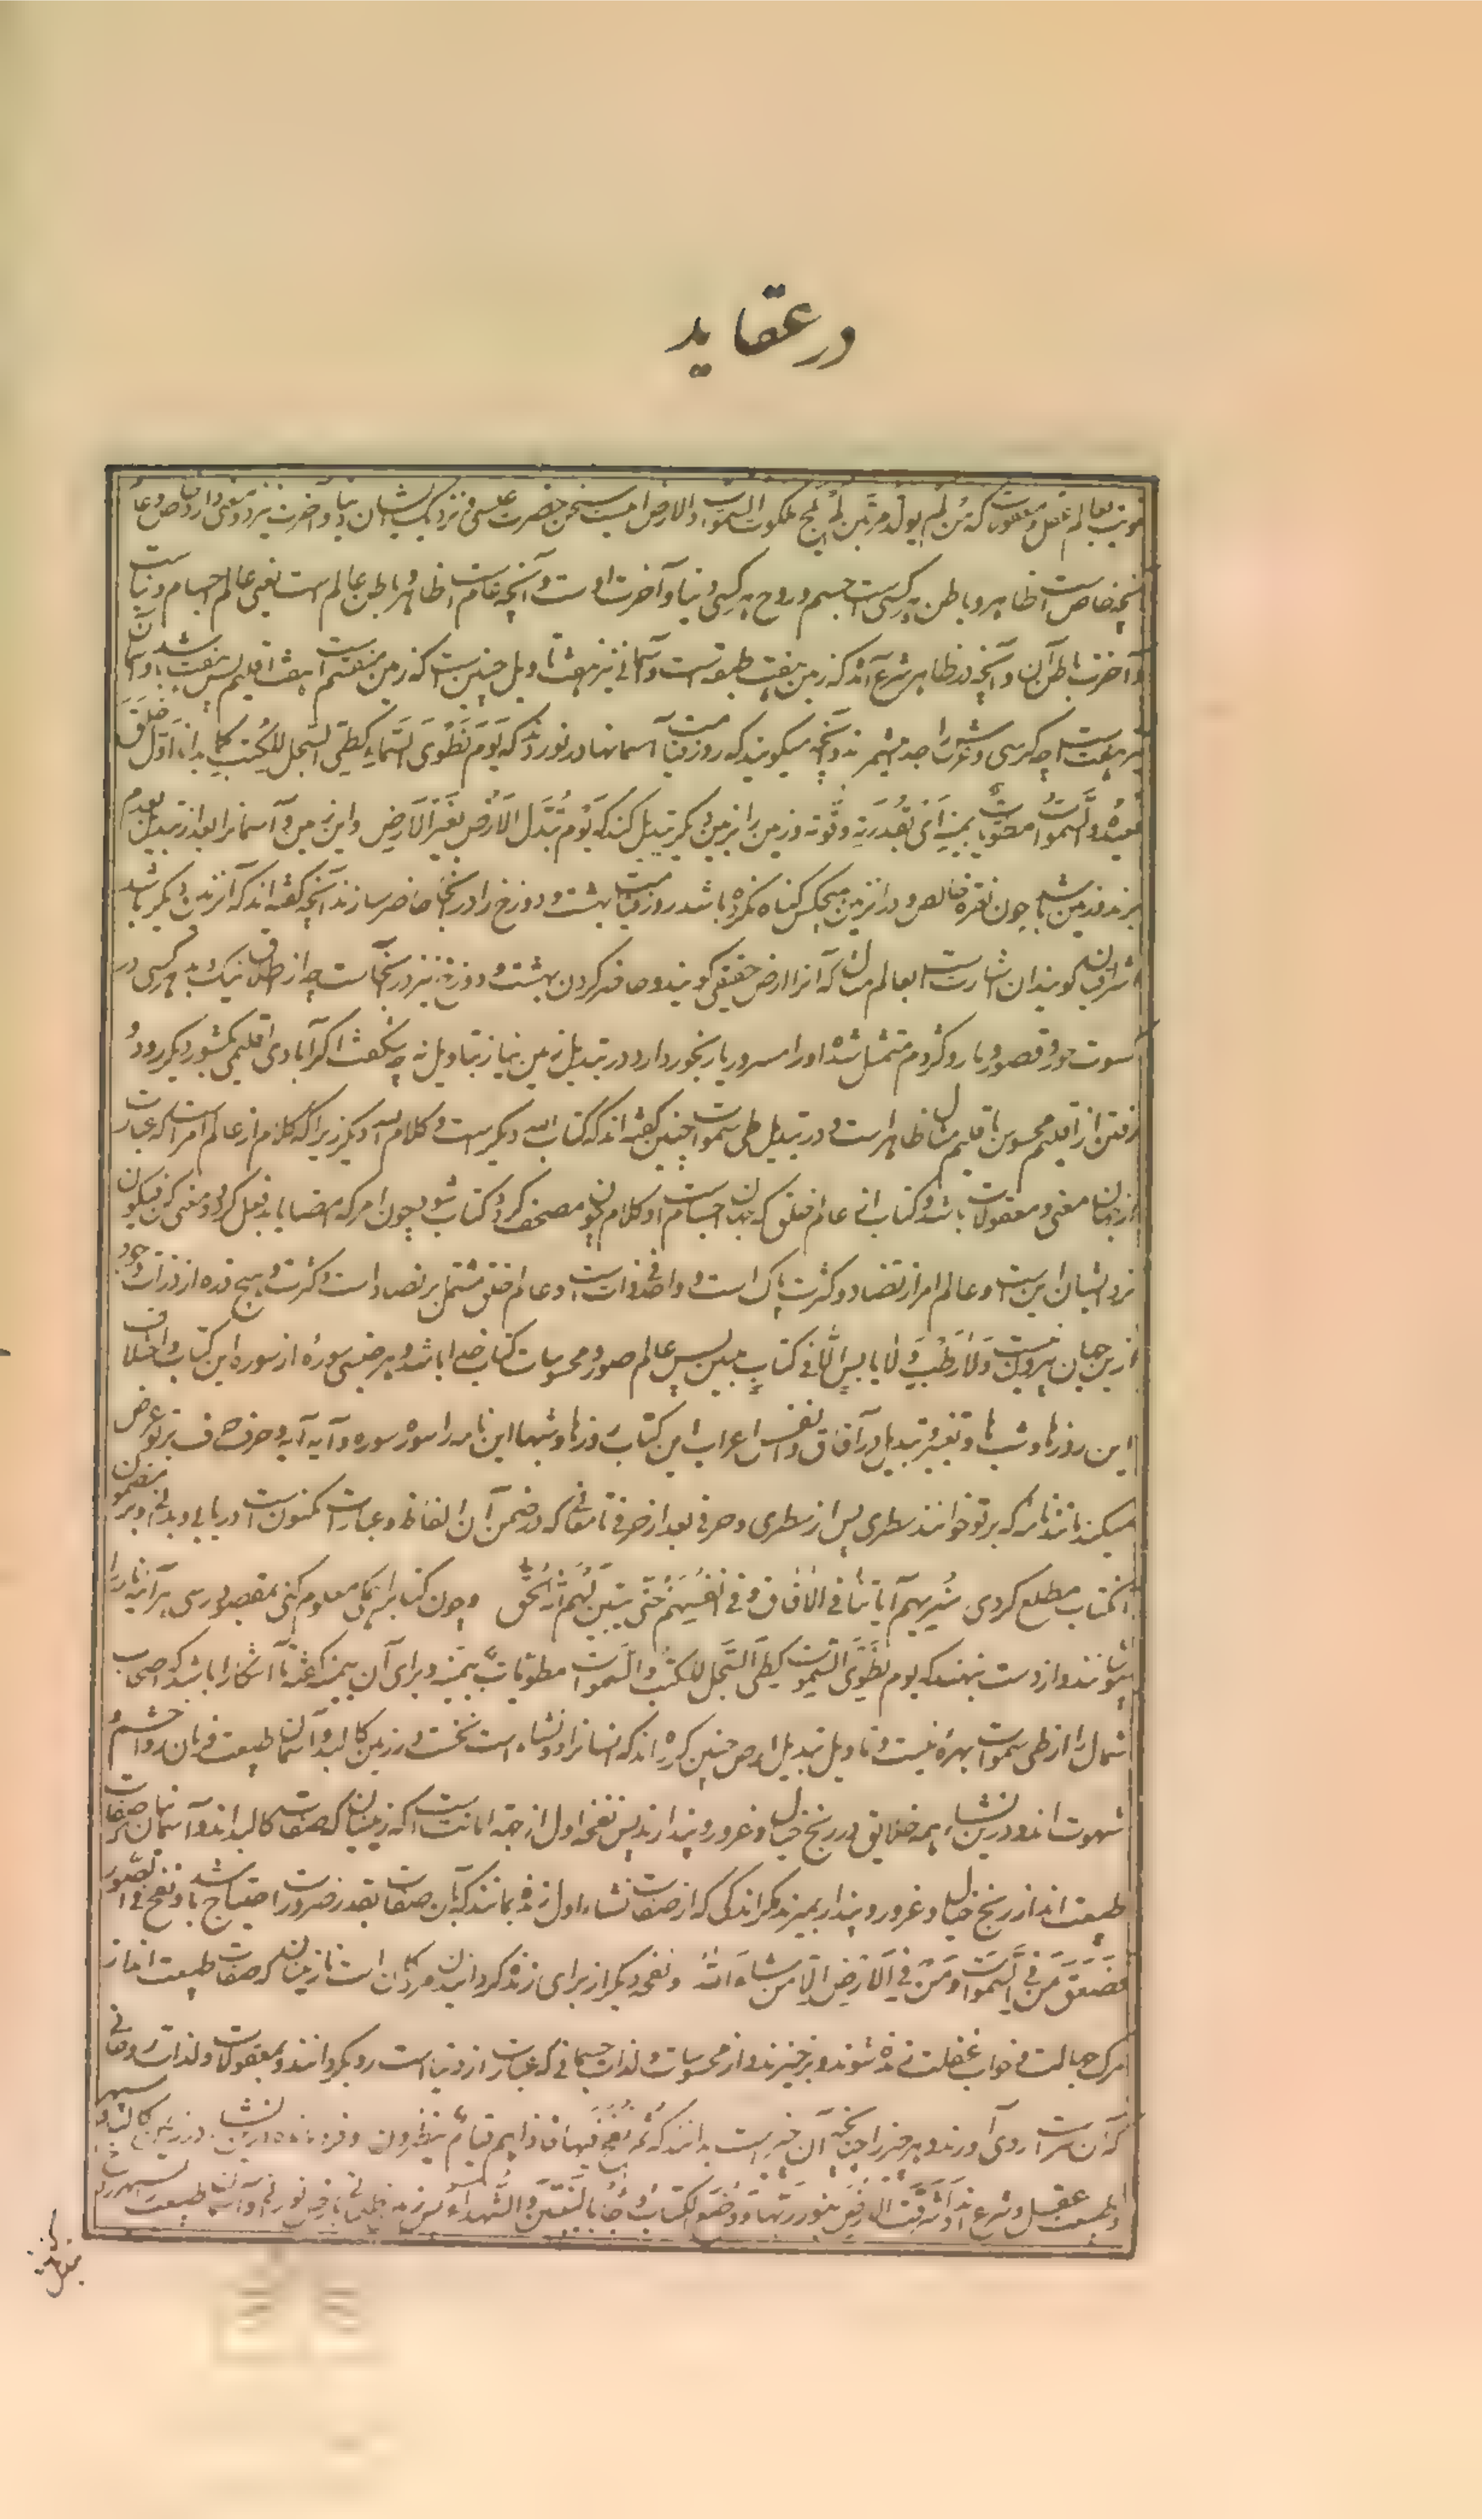 در عقاید
بعالم عقل و معقولات که من لم یولد مرتین لم یلج ملکوت السموات والارض این سخن حضرت عیسی و نزدیک ایشان دنیا و آخرت نیز دو معنی دارد خاص و عام
آنچه خاص است ظاهر و باطن هر کسی است جسم و روح هر کسی دنیا و آخرت اوست و آنچه عام است ظاهر و باطن عالم است یعنی عالم اجسام دنیاست
و آخرت باطن آن و آنچه در ظاهر شرع آمد که زمین هفت طبقه است و آسمان نیز هفت تاویل چنین است که زمین منقسم بهفت اقلیم پس هفت باشد و آسمان
نیز هفت است چه کرسی و عرش را جدا میشمرند و آنچه میگویند که روز قیامت آسمانها در نوردند که یوم نطوی السماء کطی السجل للکتب کما بدانا اول خلق
نعیده والسموات مطویات بیمینه ای بقدرته و قوته و زمین را بزمین دیگر تبدیل کنند که یوم تبدل الارض بغیر الارض و این زمین و آسمانرا بعد از تبدیل بعدم
برند و زمین باشد چون نقره خالص و در آن زمین هیچکس گناه نکرده باشد روز قیامت بهشت و دوزخ را در آنجا حاضر سازند آنچه گفته اند که آن زمین دیگر باشد
اشراقیان گویند آن اشارت است بعالم مثال که آنرا ارض حقیقی گویند و حاضر کردن بهشت و دوزخ نیز در آنجاست چه از اخلاق نیک و بد هر کسی در
صورت حور و قصور و مار و کژدم متمثل شده او را مسرور یا رنجور دارد در تبدیل زمین نیاز بتاویل نه چه شگفت اگر آبادی اقلیمی بکشور دیگر رود و
رفتن از اقلیم محسوس باقلیم مثال ظاهر است و در تبدیل طی سموات چنین گفته اند که کتاب الله دیگر است و کلام الله دیگر زیرا که کلام از عالم امر است که عبارت
از جهان معنی و معقولات باشد و کتاب از عالم خلق که جهان اجسام است و کلام چون مصحف گردد کتاب شود چون امر که امضا یابد فعل گردد معنی کن فیکون
نزد ایشان این است و عالم امر از تضاد و کثرت پاک است و واحد ذات است و عالم خلق مشتمل بر تضاد است و کثرت و هیچ ذره از ذرات وجود
ازین جهان بیرون نیست ولا رطب ولا یابس الا فی کتاب مبین پس عالم صور و محسوسات کتاب خدا باشد و هر جنسی سوره از سوره این کتاب و اختلاف
این روزها و شبها و تغییر و تبدیل در آفاق و انفس اعراب این کتاب روزها و شبها این نامه را سوره سوره و آیه آیه و حرف حرف بر تو عرض
میکنند مانند نامه که بر تو خوانند سطری پس از سطری و حرفی بعد از حرفی تا معانی که در ضمن آن الفاظ و عبارات مکنون است دریابی و بدانی و بر مضمون
کتاب مطلع گردی سنریهم آیاتنا فی الآفاق و فی انفسهم حتی یتبین لهم انه الحق و چون کتابرا معلوم کنی بمقصود رسی هر آینه نامه را
بپوشند و از دست بنهند که یوم نطوی السموات کطی السجل للکتب والسموات مطویات بیمینه و برای آن بیمینه گفته تا آشکارا باشد که اصحاب
شمال را از طی سموات بهره نیست و تاویل تبدیل ارض چنین کرده اند که انسانرا دو نشاء است نخست در زمین کالبد و آسمان طبیعت فرمان روا خشم و
شهوت اند و درین نشاء همه خلایق در رنج خیال و غرور و پندارند پس نفخه اول از جهة اماتت است که زمینیان که صفات کالبدند و آسمانیان که صفات
طبیعت اند از رنج خیال و غرور و پندار بمیرند مگر اندکی که از صفات نشاء اول زنده بمانند که آن صفات بقدر ضرورت احتیاج باشد و نفخ فی الصور
فصعق من فی السموات و من فی الارض الا من شاء الله و نفخه دیگر از برای زنده گردانیدن مردگان است تا زمینیان که صفات طبیعت اند از
مرگ جهالت و خواب غفلت زنده شوند و برخیزند و از محسوسات و لذات جسمانی که عبارت از دنیاست رو بگردانند و بمعقولات و لذات روحانی
که آخرت است روی آورند و هر چیز را چنانچه آن چیز است بدانند که ثم نفخ فیه اخری فاذا هم قیام ینظرون و درین نشاء زمین کالبد و سپهر
طبیعت عقل و شرع اند و اشرقت الارض بنور ربها و وضع الکتاب و جئ بالنبیین والشهداء پس زمین ظلمانی بارض نورانی و آسمان طبیعت